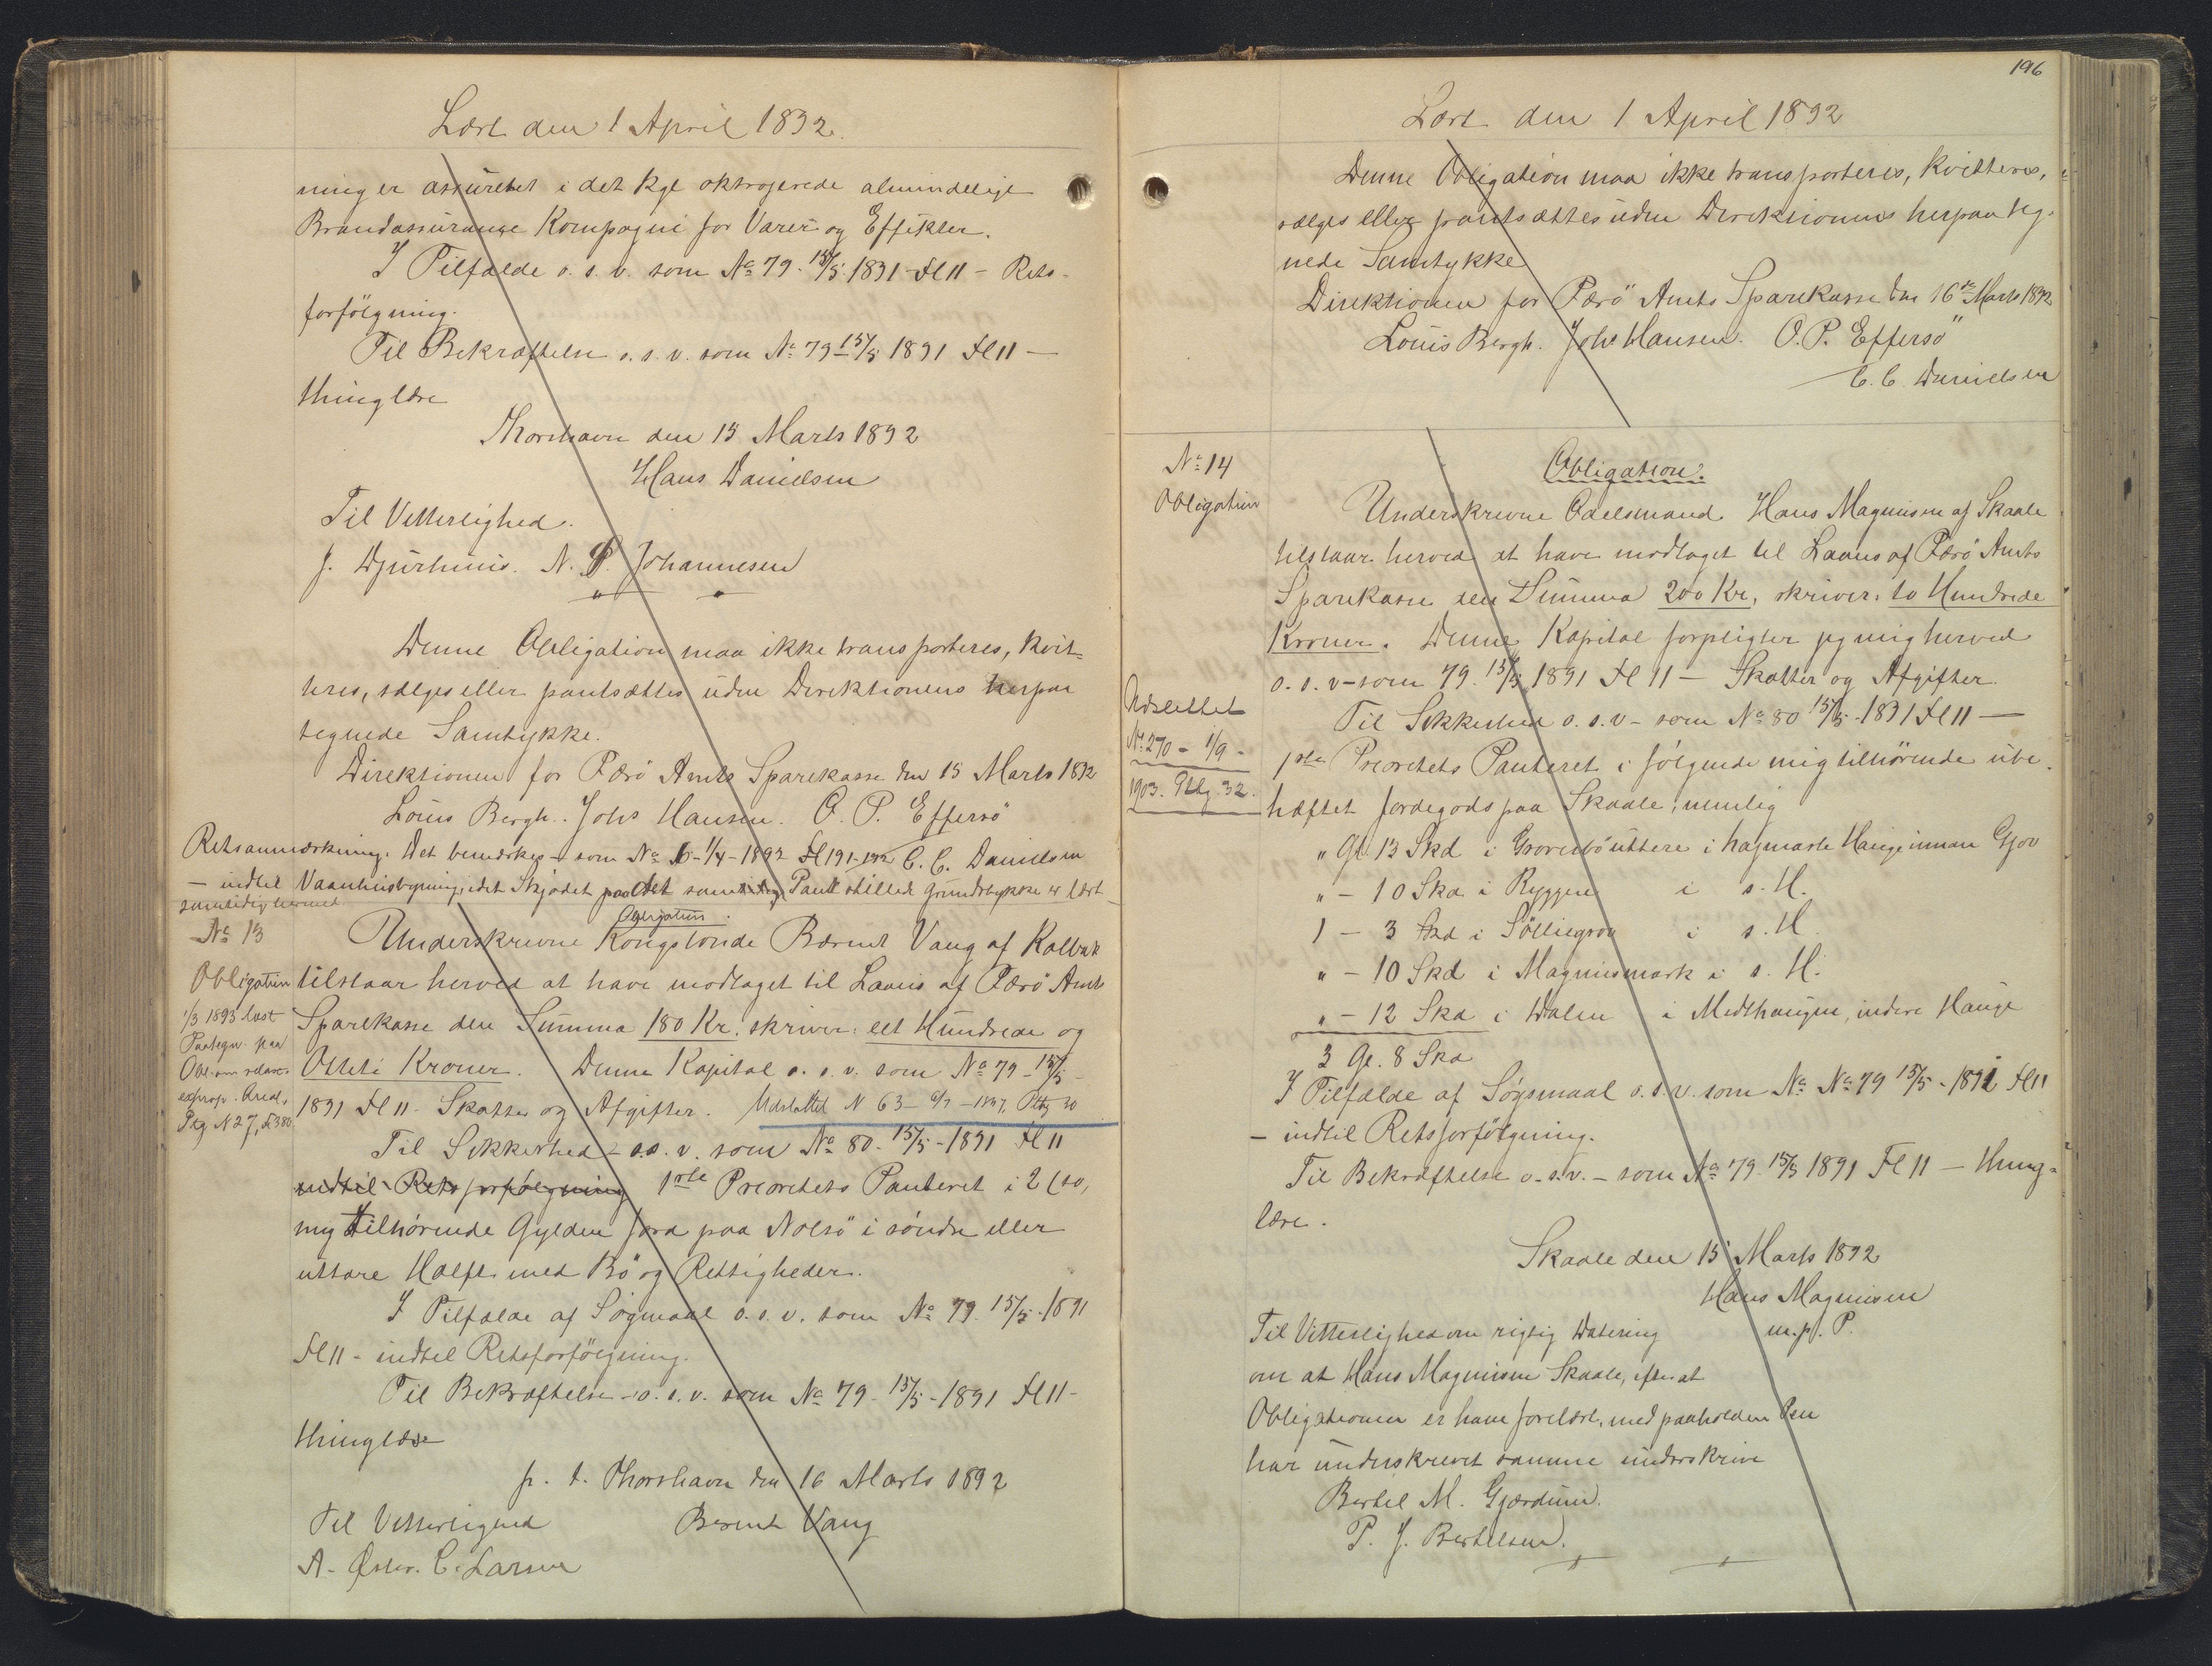 Læst den 1 April 1892.
ninger assureret i det Kgl oktrojerede almindelige
Brandassurance Kompagni for Varer og Effekter.
I Tilfælde o. s. v. som No 79. 15/5 1891 Fl 11 - Rets-
forfölgning.
Til Bekræftelse o. s. v. som No 79 15/5 1891 Fl 11 -
thinglæse
Thorshavn den 15 Marts 1892
Hans Danielsen
Til Vitterlighed.
J. Djurhuus. N. P. Johannesen
Denne Obligation maa ikke transporteres, kvit=
teres, sælges eller pantsættes uden Direktionens herpaa
tegnede Samtykke.
Direktionen for Færö Amts Sparekasse den 15 Marts 1892
Louis Bergh. Johs Hansen. O. P. Effersö
C. C. Danielsen
Retsanmærkning. Det bemærkes - som No 6 - 1/4 - 1892 Fl 191-192
- indtil Vaanhusbygning, idet Skjödet paa det samtidig Pant stillede Grundstykke er læst
samtidig hermed
No 13
Obligation
1/3 1893 læst
Paategn. paa
Obl. om relax.
exprop. Areal,
Ptg N 27, F 380
Obligation.
Underskrevne Kongsbonde Berent Vang af Kalbak
tilstaar herved at have modtaget til Laans af Færö Amts
Sparekasse den Summa 180 Kr. skriver: eet Hundrede og
Otteti Kroner. Denne Kapital o. s. v. som No 79 - 15/5 -
1891 Fl 11 - Skatter og Afgifter. Udslettet N 63 - 6/7 - 1937, Ptbg 30
Til Sikkerhed - o. s. v. som No 80. 15/5 - 1891 Fl 11
indtil Retsforfölgning 1ste Prioritets Panteret i 2 (to,
mig tilhörende Gylden Jord paa Nolsö i söndre eller
uttare Halft med Bö og Rettigheder.
I Tilfælde af Sögmaal o. s. v. som No 79. 15/5 - 1891
Fl 11 - indtil Retsforfölgning.
Til Bekræftelse - o. s. v. som No 79 - 15/5 - 1891 Fl 11 -
thinglæse
p. t. Thorshavn den 16 Marts 1892
Til Vitterlighed Berent Vang
A. Öster. C. Larsen
196
Læst den 1 April 1892
Denne Obligation maa ikke transporteres, kvitteres,
sælges eller pantsættes uden Direktionens herpaa teg-
nede Samtykke
Direktionen for Færö Amts Sparekasse den 16de Marts 1892
Louis Bergh. Johs Hansen. O. P. Effersö
C. C. Danielsen
No 14
Obligation
Udslettet
No 270 - 1/9 -
1903. Ptbg. 32.
Obligation.
Underskrevne Odelsmand Hans Magnusen af Skaale
tilstaar herved at have modtaget til Laans af Færö Amts
Sparekasse den Summa 200 Kr, skriver: to Hundrede
Kroner. Denne Kapital forpligter jeg mig herved
o. s. v - som 79. 15/5 1891 Fl 11 - Skatter og Afgifter.
Til Sikkerhed o. s. v - som No 80 15/5 - 1891 Fl 11 -
1ste Prioritets Panteret i fölgende mig tilhörende ube-
hæftet Jordegods paa Skaale, nemlig
" Gl. 13 Skd i Grovenbö uttere i hagmarte Hauge innan Gjov
" - 10 Skd i Ryggen i s. H.
1 - 3 Skd i Sölliegrov i s. H.
" - 10 Skd i Magnusmark i s. H.
" - 12 Skd i Dalen i Midthaugen, indere Hauge
3 Gl. 8 Skd
I Tilfælde af Sögsmaal o. s. v. som No No 79 15/5 - 1891 Fl 11
- indtil Retsforfölgning.
Til Bekræftelse o. s. v. - som No 79 15/5 1891 Fl 11 - thing=
læse.
Skaale den 15 Marts 1892
Hans Magnusen
m. p. P.
Til Vitterlighed om rigtig Datering
om at Hans Magnusen Skaale, efter at
Obligationen er ham forelæst, med paaholden Pen
har underskrevet samme underskrive
Bertel M. Gjærdum.
P. J. Bertelsen.